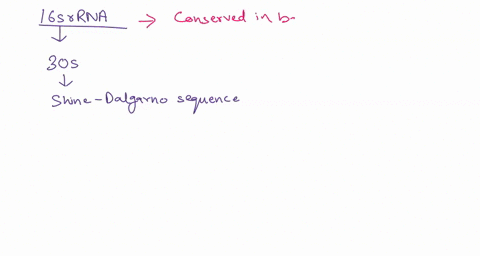 16s rRNA → Conserved in b-
↓
30s
↓
Shine-Dalgarno sequence